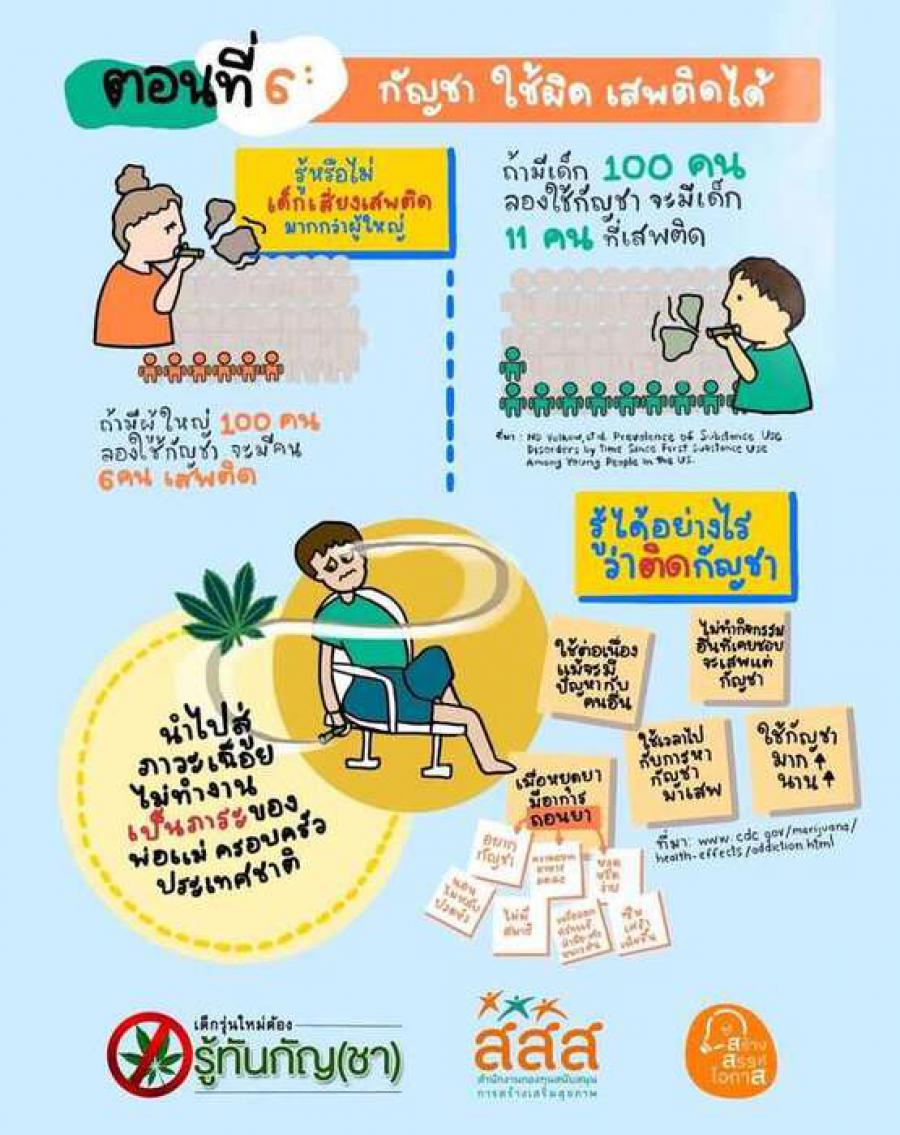 ตอนที่ 6:
กัญชา ใช้ผิด เสพติดได้
รู้หรือไม่
เด็กเสี่ยงเสพติด
มากกว่าผู้ใหญ่
ถ้ามีผู้ใหญ่ 100 คน
ลองใช้กัญชา จะมีคน
6คน เสพติด
ถ้ามีเด็ก 100 คน
ลองใช้กัญชา จะมีเด็ก
11 คน ที่เสพติด
ที่มา : ND Volkow, et d. Prevalence of Substance Use
Disorders by Time Since First Substance Use
Among Young People in the US.
รู้ได้อย่างไร
ว่าติดกัญชา
ใช้ต่อเนื่อง
แม้จะมี
ปัญหากับ
คนอื่น
ไม่ทำกิจกรรม
อื่นที่เคยชอบ
จะเสพแต่
กัญชา
เมื่อหยุดยา
มีอาการ
ถอนยา
ใช้เวลาไป
กับการหา
กัญชา
มาเสพ
ใช้กัญชา
มาก ↑
นาน ↑
อยาก
กัญชา
ความอยาก
อาหาร
ลดลง
หงุดหงิด
ง่าย
นอน
ไม่หลับ
ปวดหัว
ไม่มี
สมาธิ
ซึม
เศร้า
ที่มา: www.cdc.gov/marijuana/
health-effects/addiction.html
นำไปสู่
ภาวะเฉื่อย
ไม่ทำงาน
เป็นภาระของ
พ่อแม่ ครอบครัว
ประเทศชาติ
เด็กรุ่นใหม่ต้อง
รู้ทันกัญ(ชา)
สสส
สำนักงานกองทุนสนับสนุน
การสร้างเสริมสุขภาพ
สร้าง
สรรค์
โอกาส